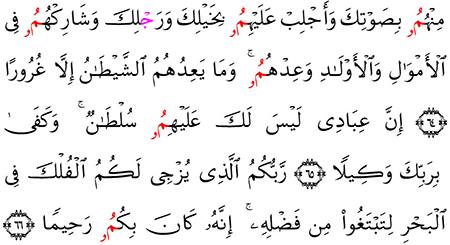 مِنْهُمُۥ بِصَوْتِكَ وَأَجْلِبْ عَلَيْهِمُۥ بِخَيْلِكَ وَرَجْلِكَ وَشَارِكْهُمُۥ فِى
ٱلْأَمْوَٰلِ وَٱلْأَوْلَٰدِ وَعِدْهُمُۥ ۚ وَمَا يَعِدُهُمُ ٱلشَّيْطَٰنُ إِلَّا غُرُورًا
﴿٦٤﴾ إِنَّ عِبَادِى لَيْسَ لَكَ عَلَيْهِمُۥ سُلْطَٰنٌ ۚ وَكَفَىٰ
بِرَبِّكَ وَكِيلًا ﴿٦٥﴾ رَّبُّكُمُ ٱلَّذِى يُزْجِى لَكُمُ ٱلْفُلْكَ فِى
ٱلْبَحْرِ لِتَبْتَغُوا۟ مِن فَضْلِهِۦٓ ۚ إِنَّهُۥ كَانَ بِكُمُۥ رَحِيمًا ﴿٦٦﴾